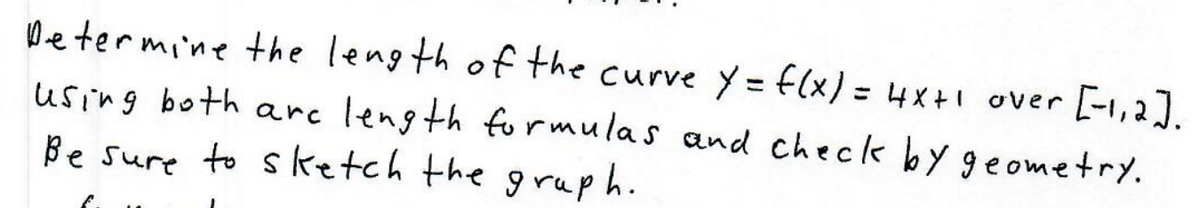 Determine the length of the curve y = f(x) = 4x+1 over [-1,2].
using both arc length formulas and check by geometry.
Be sure to sketch the graph.